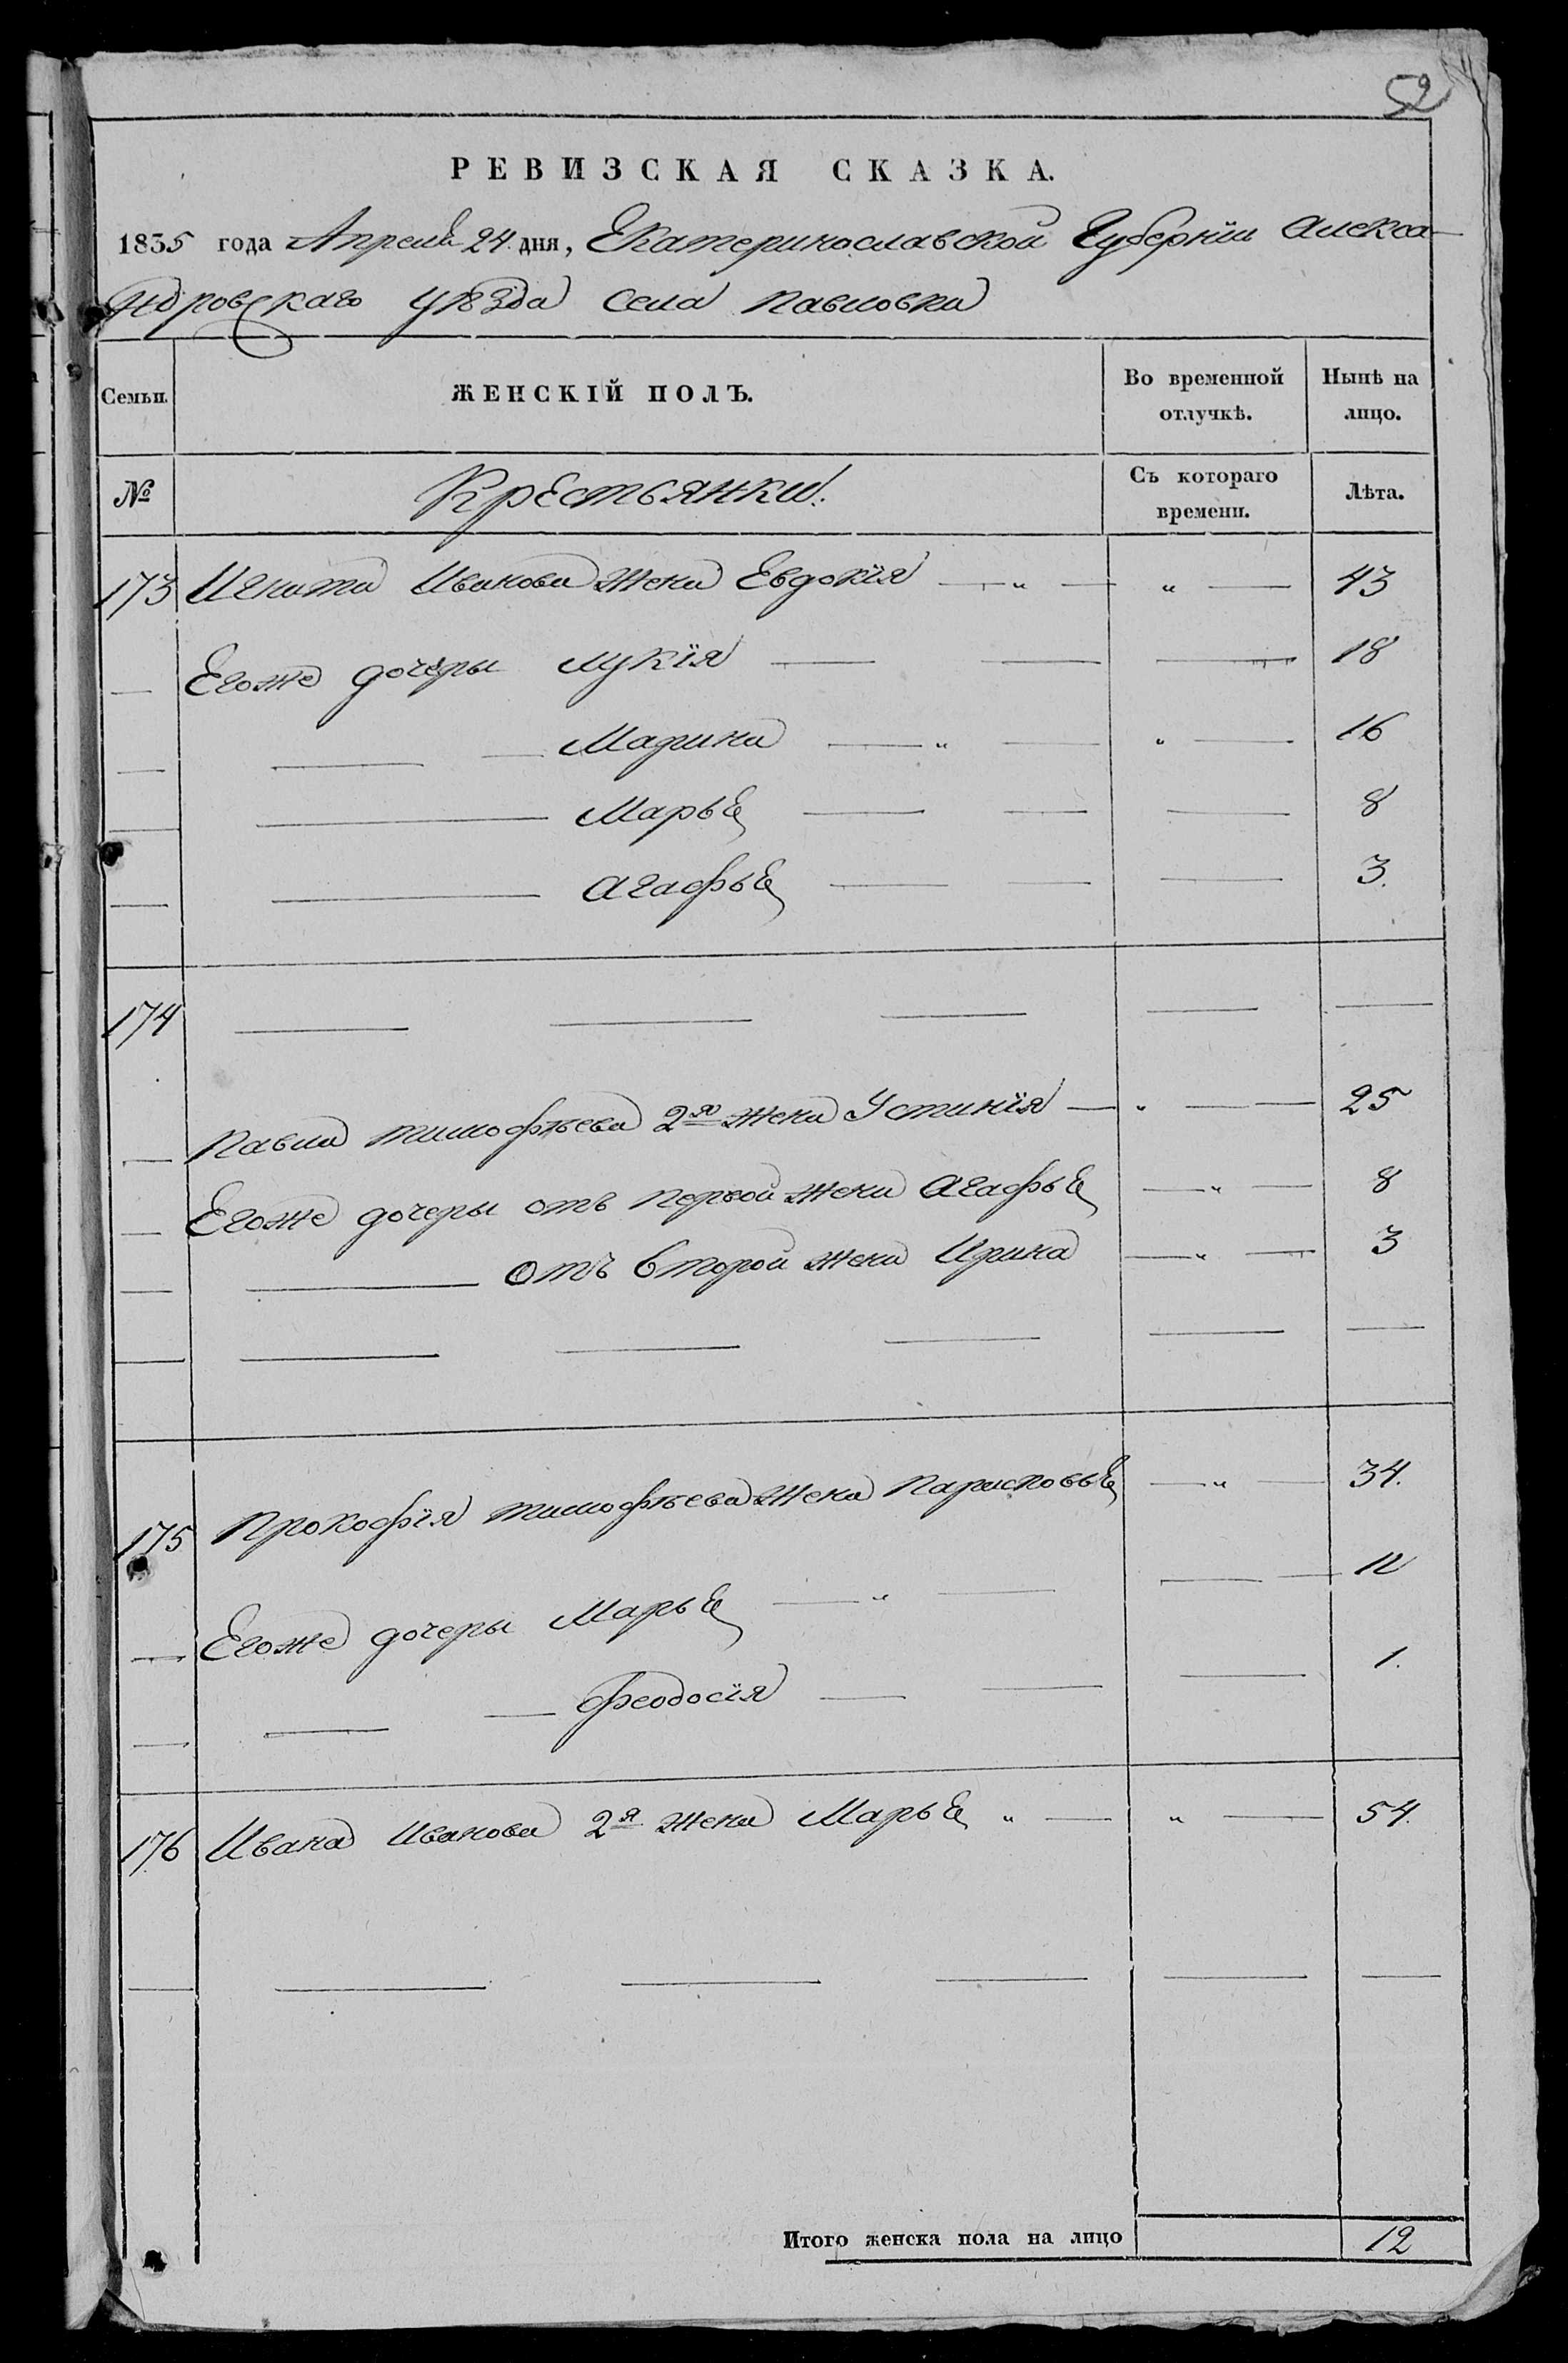 52
РЕВИЗСКАЯ СКАЗКА.
1835 года Апреля 24. дня, Екатеринославской Губернїи Алекса-
ндровскаго уѣзда Села Павловки
Семьи. ЖЕНСКІЙ ПОЛЪ. Во временной отлучкѣ. Нынѣ на лицо.
№ Крестьянки. Съ котораго времени. Лѣта.
173 Игната Иванова жена Евдокїя — " — " — 43
— Егоже дочеры Лукїя — — — 18
— — — Марина — " — " — 16
— — Марья — — — 8
— — Агафья — — — 3.
174 — — — — —
— Павла Тимофѣева 2я жена Устинїя — " — — 25
— Егоже дочеры отъ первой жены Агафья — " — 8
— — отъ второй жены Ирина — " — 3
— — — — — —
175 Прокофїя Тимофѣева жена Парасковья — " — 34.
— Егоже дочеры Марья — " — — — 12
— — — Феодосїя — — — 1.
176 Ивана Иванова 2я жена Марья " — " — 54.
— — — — — —
Итого женска пола на лицо 12